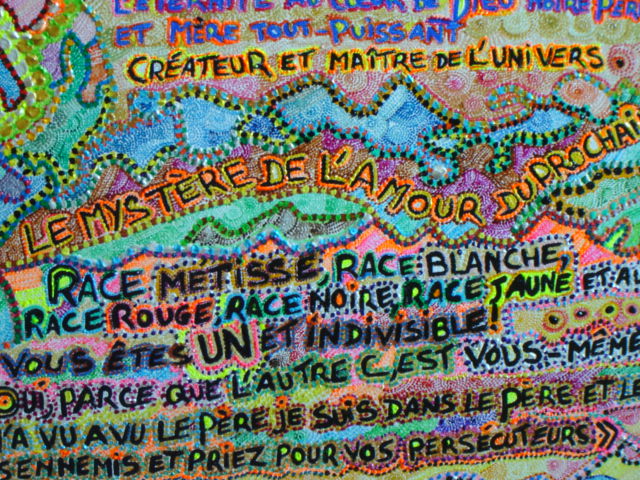 L'ETERNITÉ AU CŒUR DE DIEU NOTRE PÈR
ET MÈRE TOUT-PUISSANT
CRÉATEUR ET MAÎTRE DE L'UNIVERS.
LE MYSTÈRE DE L'AMOUR DU PROCHAI
RACE METISSE, RACE BLANCHE,
RACE ROUGE, RACE NOIRE, RACE JAUNE ET A
VOUS ÊTES UN ET INDIVISIBLE!
OUI, PARCE QUE L'AUTRE C'EST VOUS-MÊME
'A VU A VU LE PÈRE, JE SUIS DANS LE PÈRE ET LE
SENNEMIS ET PRIEZ POUR VOS PERSÉCUTEURS »